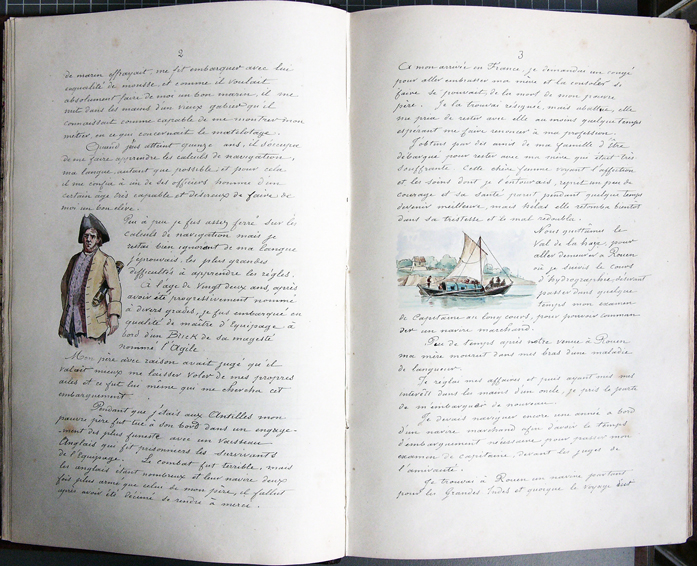 2
de marin effrayait, me fit embarquer avec lui
en qualité de mousse, et comme il voulait
absolument faire de moi un bon marin, il me
mit dans les mains d'un vieux gabier qu'il
connaissait comme capable de me montrer mon
métier en ce qui concernait le matelotage.
Quand j'eus atteint quinze ans, il s'occupa
de me faire apprendre les calculs de navigation,
ma langue autant que possible, et pour cela
il me confia à un de ses officiers homme d'un
certain âge très capable et désireux de faire de
moi un bon élève.
Peu à peu je fus assez ferré sur les
calculs de navigation mais je
restai bien ignorant de ma langue
j'éprouvais les plus grandes
difficultés à apprendre les règles.
A l'age de vingt deux ans, après
avoir été progressivement nommé
à divers grades, je fus embarqué en
qualité de maître d'équipage à
bord d'un Brick de sa majesté
nommé l'Agile.
Mon père avec raison avait jugé qu'il
valait mieux me laisser voler de mes propres
ailes et ce fut lui même qui me chercha cet
embarquement.
Pendant que j'étais aux Antilles mon
pauvre père fut tué à son bord dans un engage-
ment des plus funeste avec un vaisseau
Anglais qui fit prisonniers les survivants
de l'équipage. Le combat fut terrible, mais
les anglais étant nombreux et leur navire deux
fois plus armé que celui de mon père, il fallut
après avoir été décimé se rendre à merci.
3
A mon arrivée en France, je demandai un congé
pour aller embrasser ma mère et la consoler si
faire se pouvait, de la mort de mon pauvre
père. Je la trouvai résignée, mais abattue, elle
me pria de rester avec elle au moins quelque temps
espérant me faire renoncer à ma profession.
J'obtins par des amis de ma famille d'être
débarqué pour rester avec ma mère qui était très
souffrante. Cette chère femme voyant l'affection
et les soins dont je l'entourais, reprit un peu de
courage et sa santé parut pendant quelque temps
devenir meilleure, mais hélas elle retomba bientôt
dans sa tristesse et le mal redoubla.
Nous quittâme le
Val de la haye, pour
aller demeurer à Rouen
où je suivis le cours
d'hydrographie, devant
passer dans quelque
temps mon examen
de Capitaine au long cours, pour pouvoir comman-
der un navire marchand.
Peu de temps après notre venue à Rouen
ma mère mourut dans mes bras d'une maladie
de langueur.
Je réglai mes affaires et puis ayant mis mes
intérêts dans les mains d'un oncle, je pris le parti
de m'embarquer de nouveau.
Je devais naviguer encore une année à bord
d'un navire marchand afin d'avoir le temps
d'embarquement nécessaire pour passer mon
examen de capitaine, devant les juges de
l'amirauté.
Je trouvai à Rouen un navire partant
pour les Grandes Indes et quoique le voyage dut